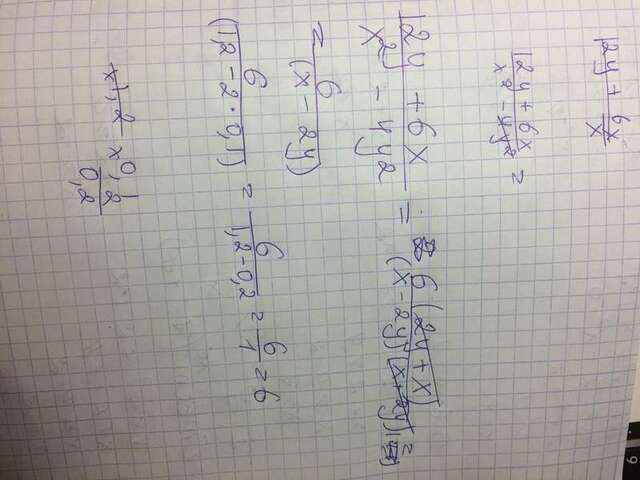 12y + 6x / x
12y + 6x / x² - 4y² =
12y + 6x / x² - 4y² = 6(2y + x) / (x - 2y)(x + 2y) =
= 6 / (x - 2y)
6 / (1,2 - 2·0,1) = 6 / 1,2 - 0,2 = 6/1 = 6
x 1,2 x 0,1
2
0,2